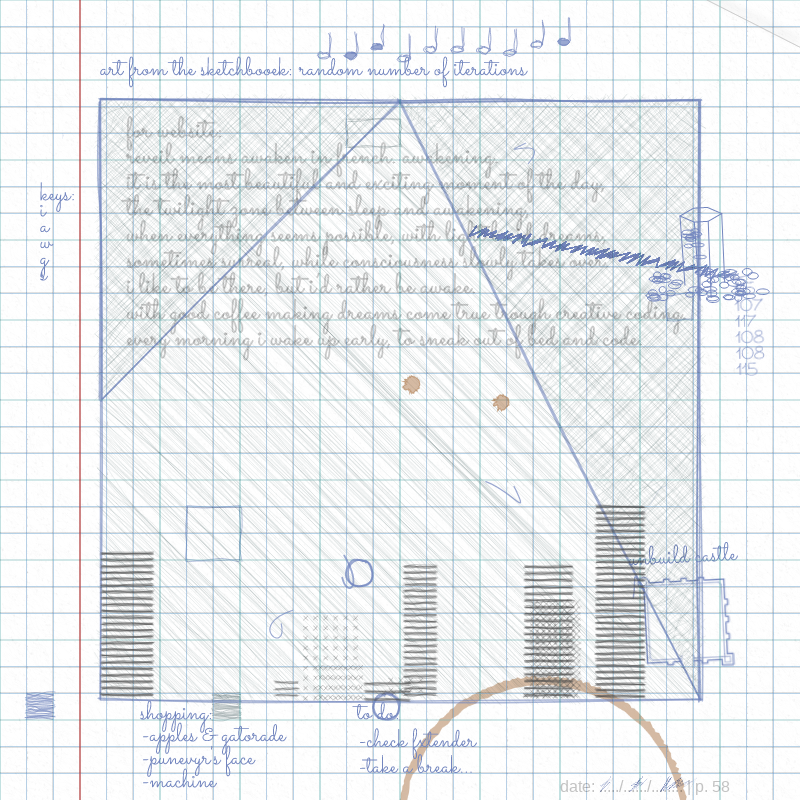 art from the sketchbooek: random number of iterations
for website:
reveil means awaken in french. awakening,
it is the most beautiful and exciting moment of the day,
the twilight zone between sleep and awakening,
when everything seems possible, with light dreams,
sometimes surreal, while consciousness slowly takes over.
i like to be there, but i'd rather be awake.
with good coffee making dreams come true trough creative coding.
every morning i wake up early, to sneak out of bed and code.
keys:
i
a
w
g
s
107
117
108
108
115
unbuild castle
shopping:
-apples & gatorade
-punevyr's face
-machine
to do:
-check fxtender
-take a break...
date: /.../ | p. 58